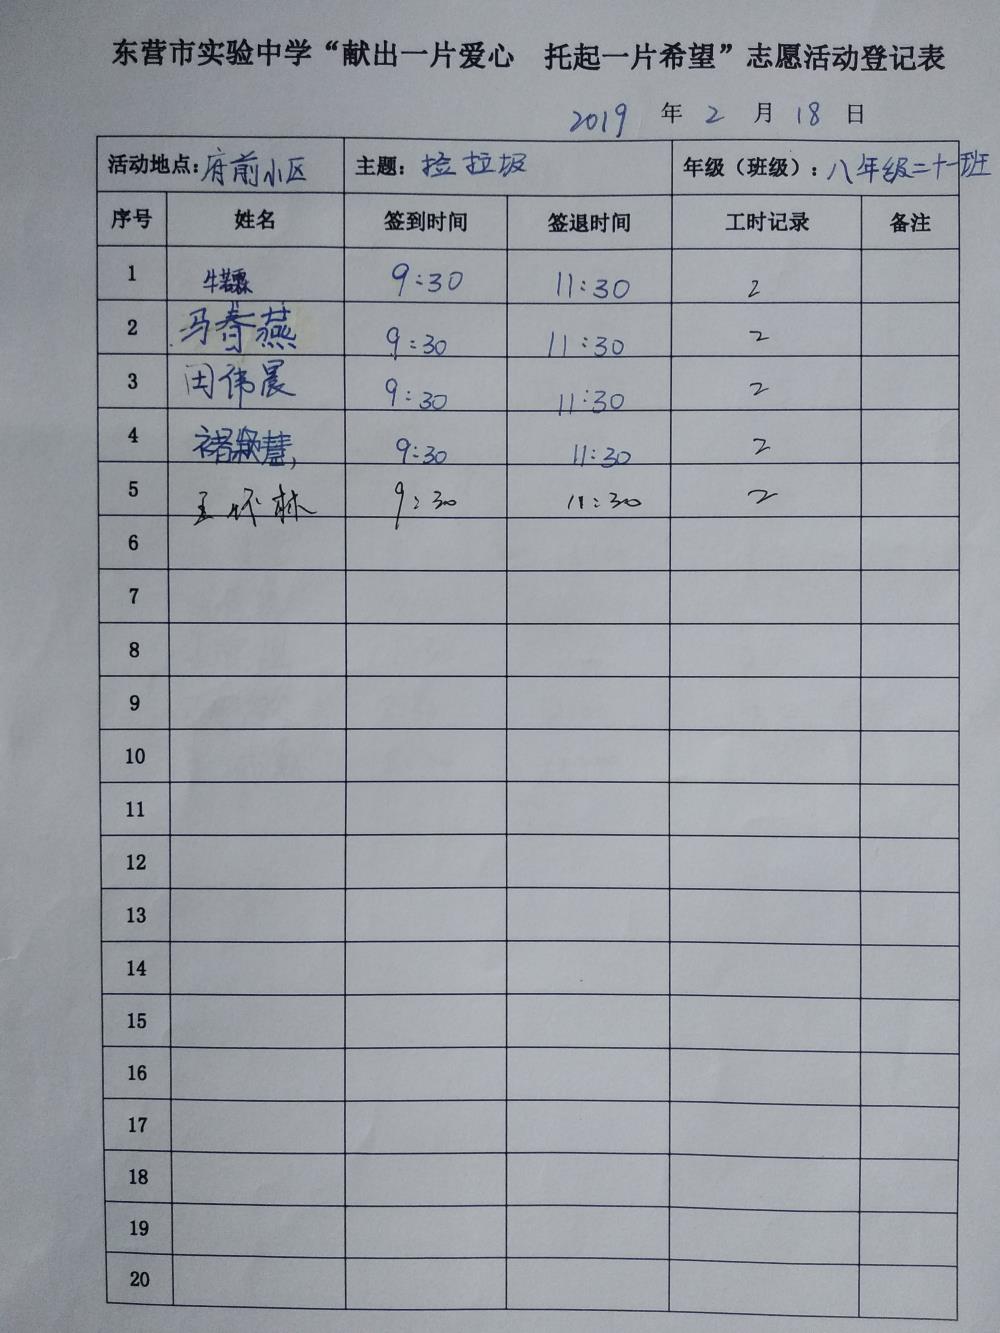 东营市实验中学“献出一片爱心 托起一片希望”志愿活动登记表
2019 年 2 月 18 日
活动地点：府前小区 主题：捡垃圾 年级（班级）：八年级二十一班
序号 姓名 签到时间 签退时间 工时记录 备注
1 9:30 11:30 2
2 冯春燕 9:30 11:30 2
3 田伟晨 9:30 11:30 2
4 褚颖慧 9:30 11:30 2
5 9:30 11:30 2
6
7
8
9
10
11
12
13
14
15
16
17
18
19
20